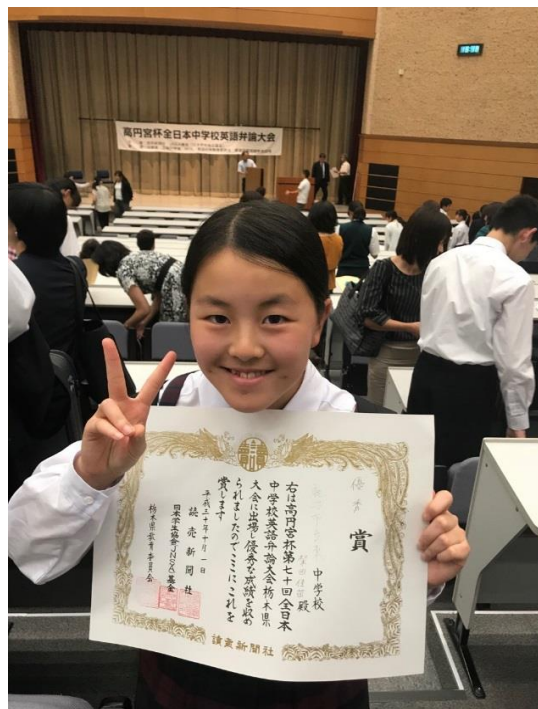 高円宮杯全日本中学校英語弁論大会
優秀賞
中学校
殿
右は高円宮杯第七十回全日本
中学校英語弁論大会栃木県
大会に出場し優秀な成績を収め
られましたのでここにこれを
賞します
平成三十年十月一日
読売新聞社
日本学生協会(JNSA)基金
栃木県教育委員会
讀賣新聞社